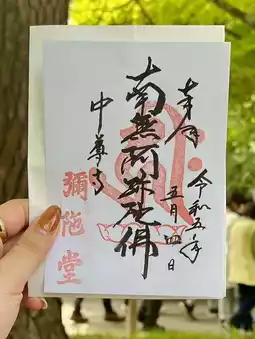 奉拝
令和五年
五月四日
南無阿弥陀佛
中尊寺
彌陀堂